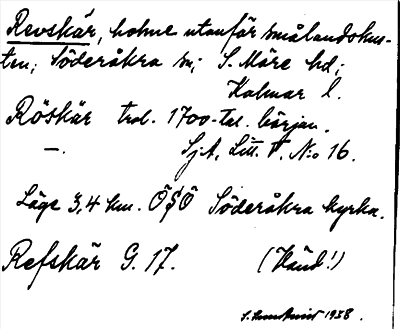 Revskär, holme utanför smålandskus-
ten; Söderåkra sn; S. Möre hd;
Kalmar l.
Röskär trol. 1700-tal. början.
—. Sj.A. Litt. F. N:o 16.
Läge 3,4 km. ÖSÖ Söderåkra kyrka.
Refskär G. 17. (Känd!)
1938.